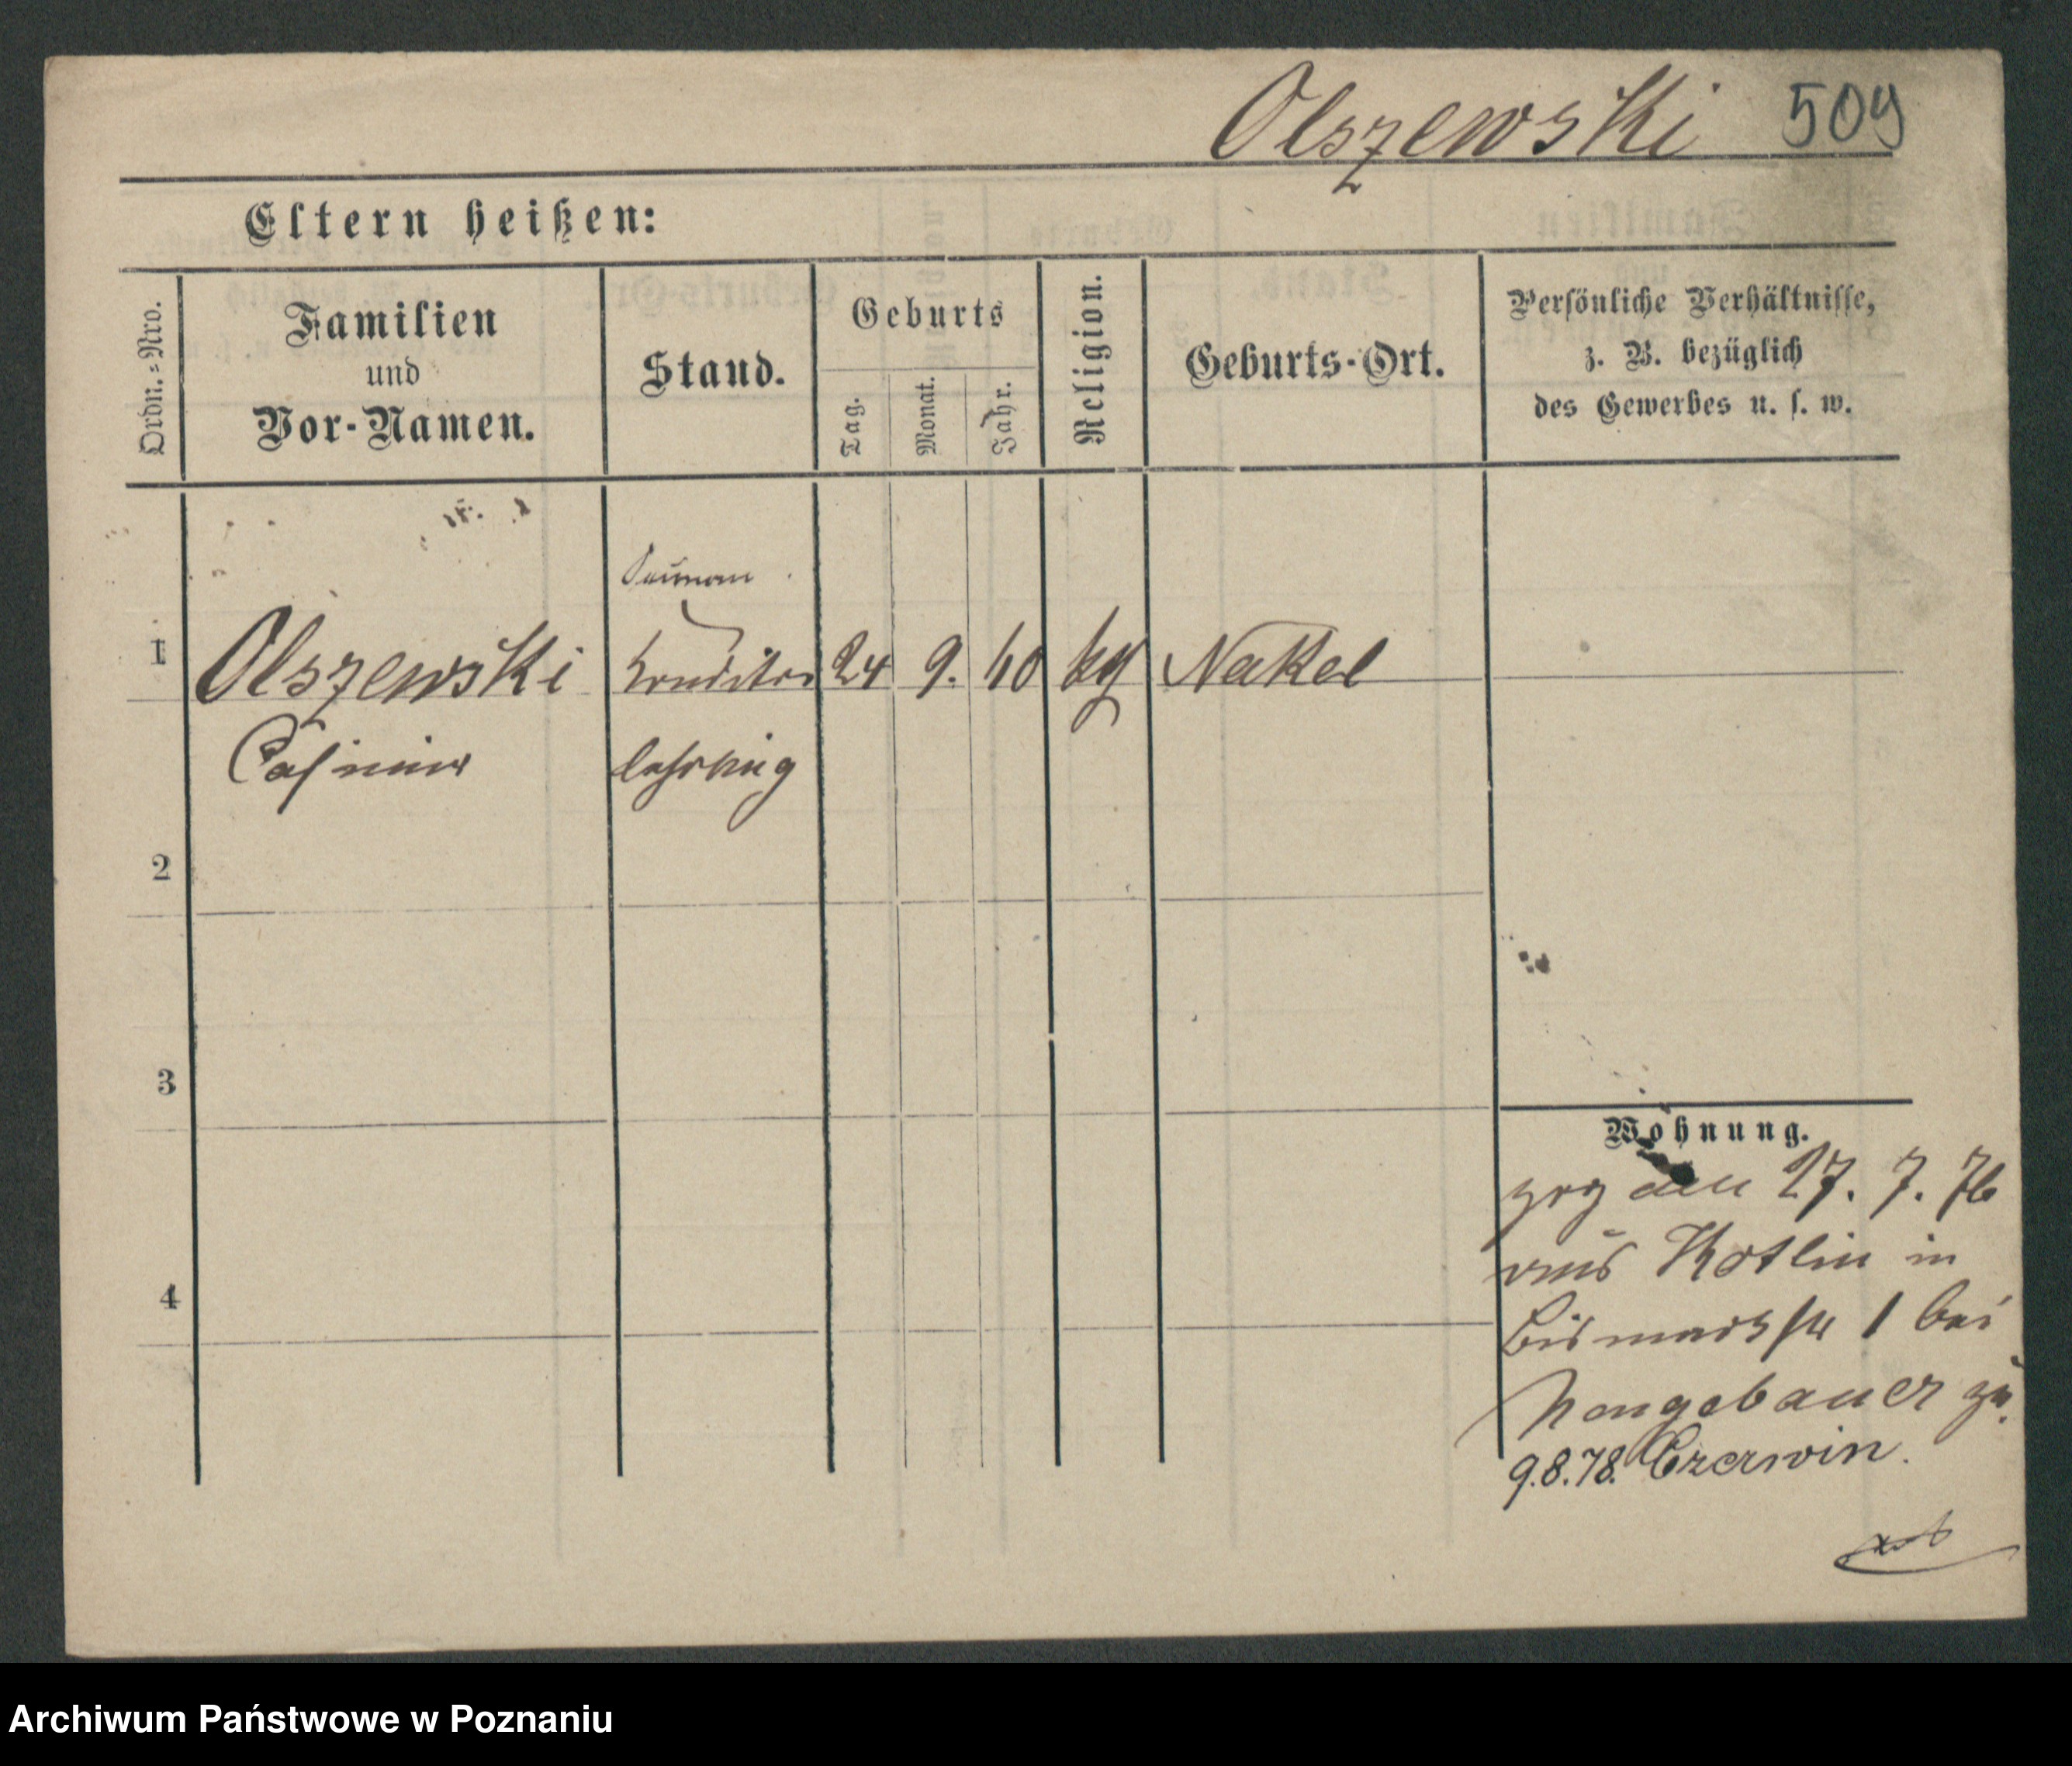 Olszewski 509
Eltern heißen:
Ordn.-Nro.
Familien
und
Vor-Namen.
Stand.
Geburts
Tag.
Monat.
Jahr.
Religion.
Geburts-Ort.
Persönliche Verhältnisse,
z. B. bezüglich
des Gewerbes u. s. w.
1
Olszewski
Casimir
Konditor
lehrling
24 9. 60
Nakel
2
3
4
Wohnung.
zog am 27. 7. 76
aus Kotlin in
Bismarckstr 1 bei
Neugebauer zu.
9.8.78. Czerwin.
Archiwum Państwowe w Poznaniu